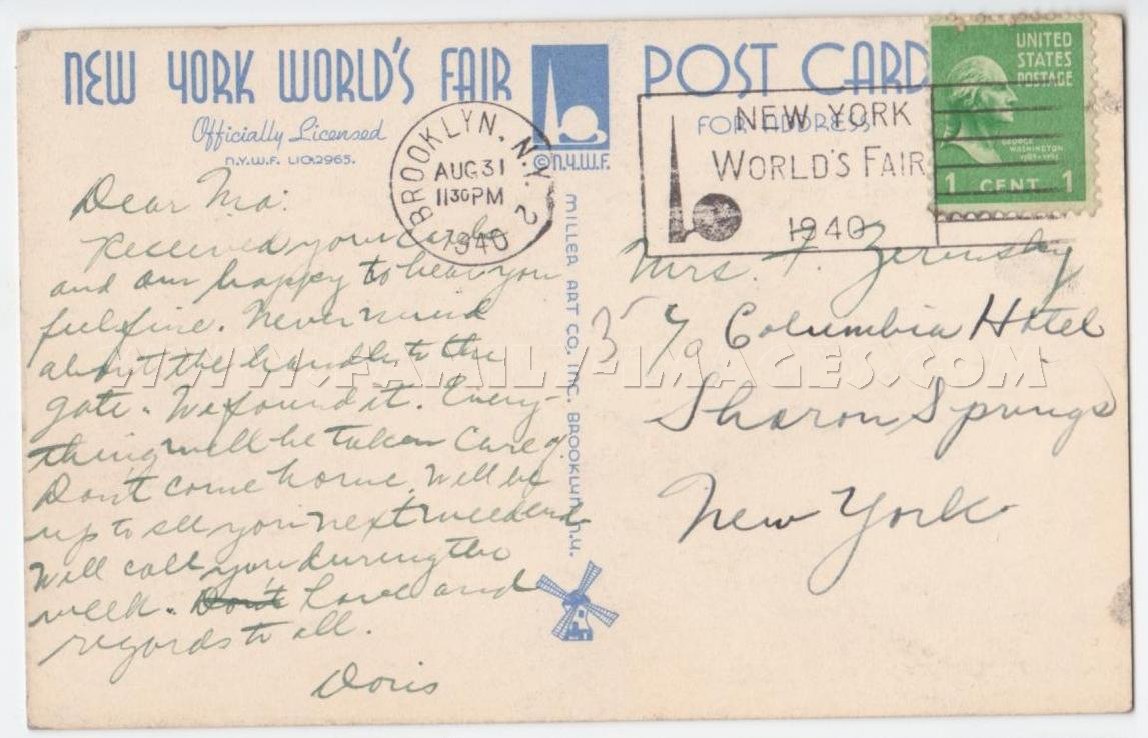 NEW YORK WORLD'S FAIR
Officially Licensed
N.Y.W.F. LIC. 2965.
© N.Y.W.F.
POST CARD
FOR ADDRESS
BROOKLYN, N.Y. 2
AUG 31
11 30 PM
1940
NEW YORK
WORLD'S FAIR
1940
UNITED
STATES
POSTAGE
GEORGE
WASHINGTON
1 CENT 1
Dear Ma:
Received your cards
and are happy to hear you
feel fine. Never mind
about the handle to the
gate. We found it. Every-
thing will be taken care of.
Don't come home. Will be
up to see you next weekend
Will call you during the
week. Don't Love and
regards to all.
Doris
MILLER ART CO. INC. BROOKLYN N.Y.
Mrs. F.
35
c/o Columbia Hotel
Sharon Springs
New York
WWW.FAMILY-IMAGES.COM